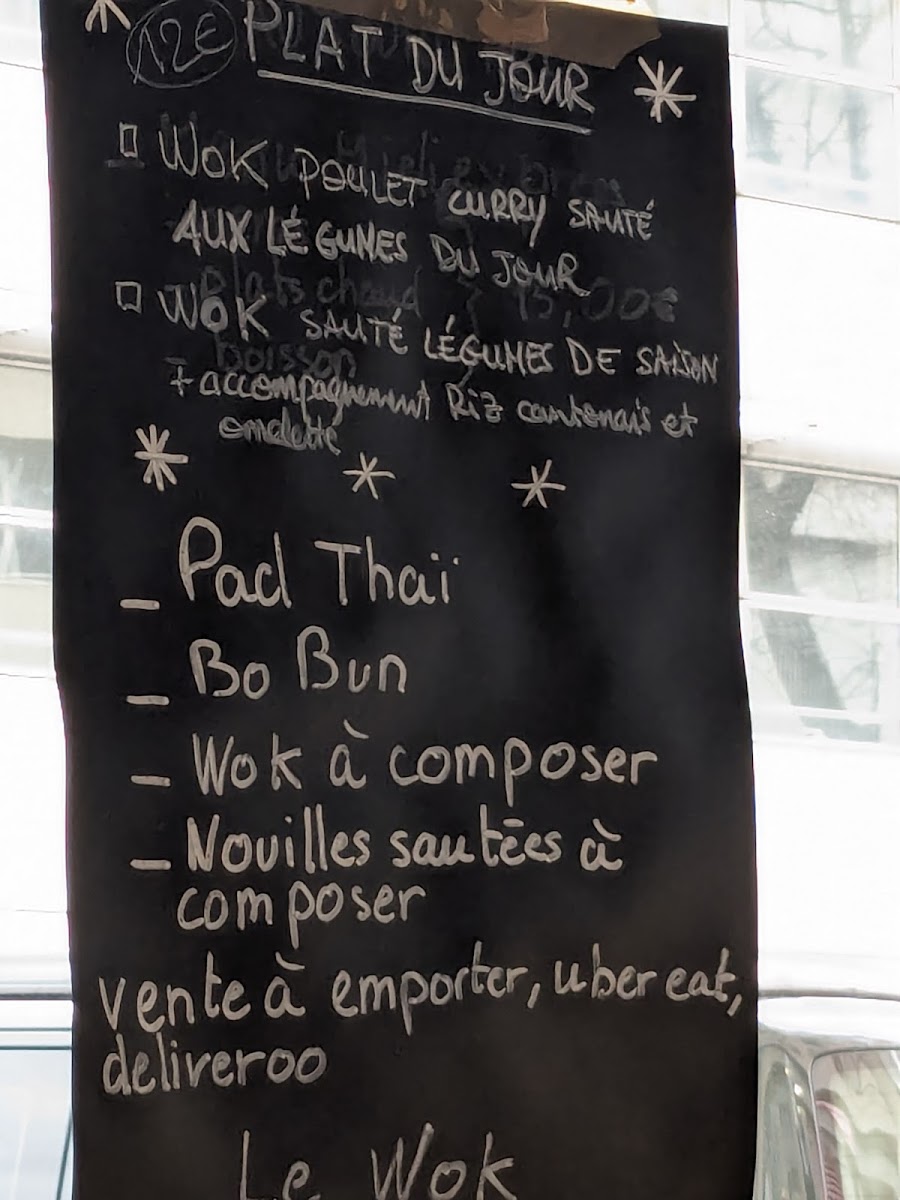 12€ PLAT DU JOUR
WOK POULET CURRY SAUTÉ
AUX LÉGUMES DU JOUR
plats chaud 15,00€
WOK SAUTÉ LÉGUMES DE SAISON
boisson
+ accompagnement Riz cantonais et
omelette
_ Pad Thaï
_ Bo Bun
_ Wok à composer
_ Nouilles sautées à
composer
vente à emporter, uber eat,
deliveroo
Le Wok